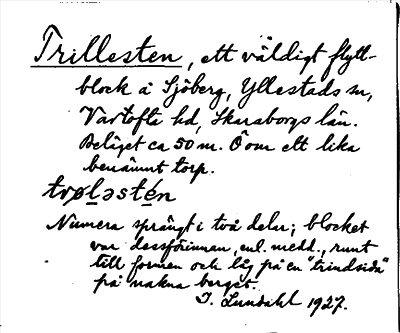 Trillesten, ett väldigt flytt-
block å Sjöberg, Yllestads sn,
Vartofta hd, Skaraborgs län.
Beläget ca 50 m. Ö om ett lika
benämnt torp.
trøləstén
Numera sprängt i två delar; blocket
var dessförinnan, enl. medd., runt
till formen och låg på en "trindsida"
på nakna berget.
I. Lundahl 1927.